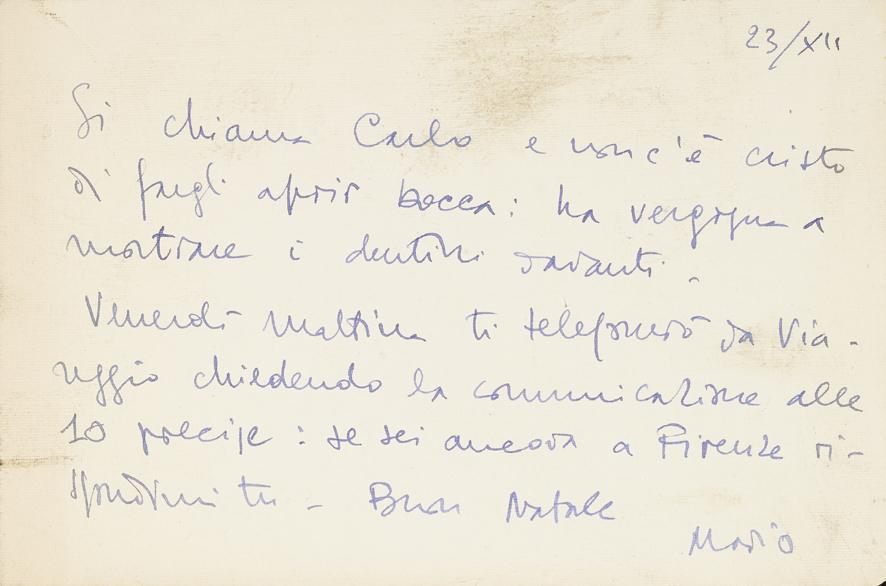 23/XII
Si chiama Carlo e non c'è cristo
di fargli aprir bocca: ha vergogna a
mostrare i dentini davanti.
Venerdì mattina ti telefonerò da Via-
reggio chiedendo la comunicazione alle
10 precise: se sei ancora a Firenze ri-
spondimi tu - Buon Natale
Mario